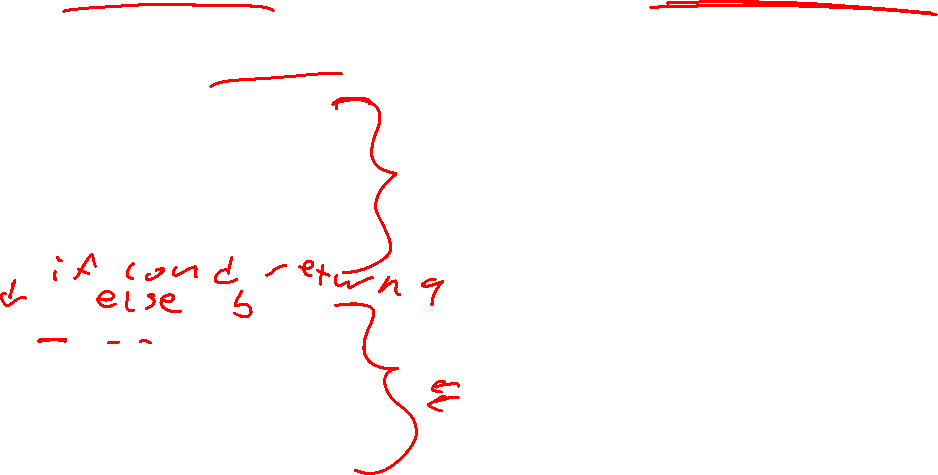 if cond return a
else b